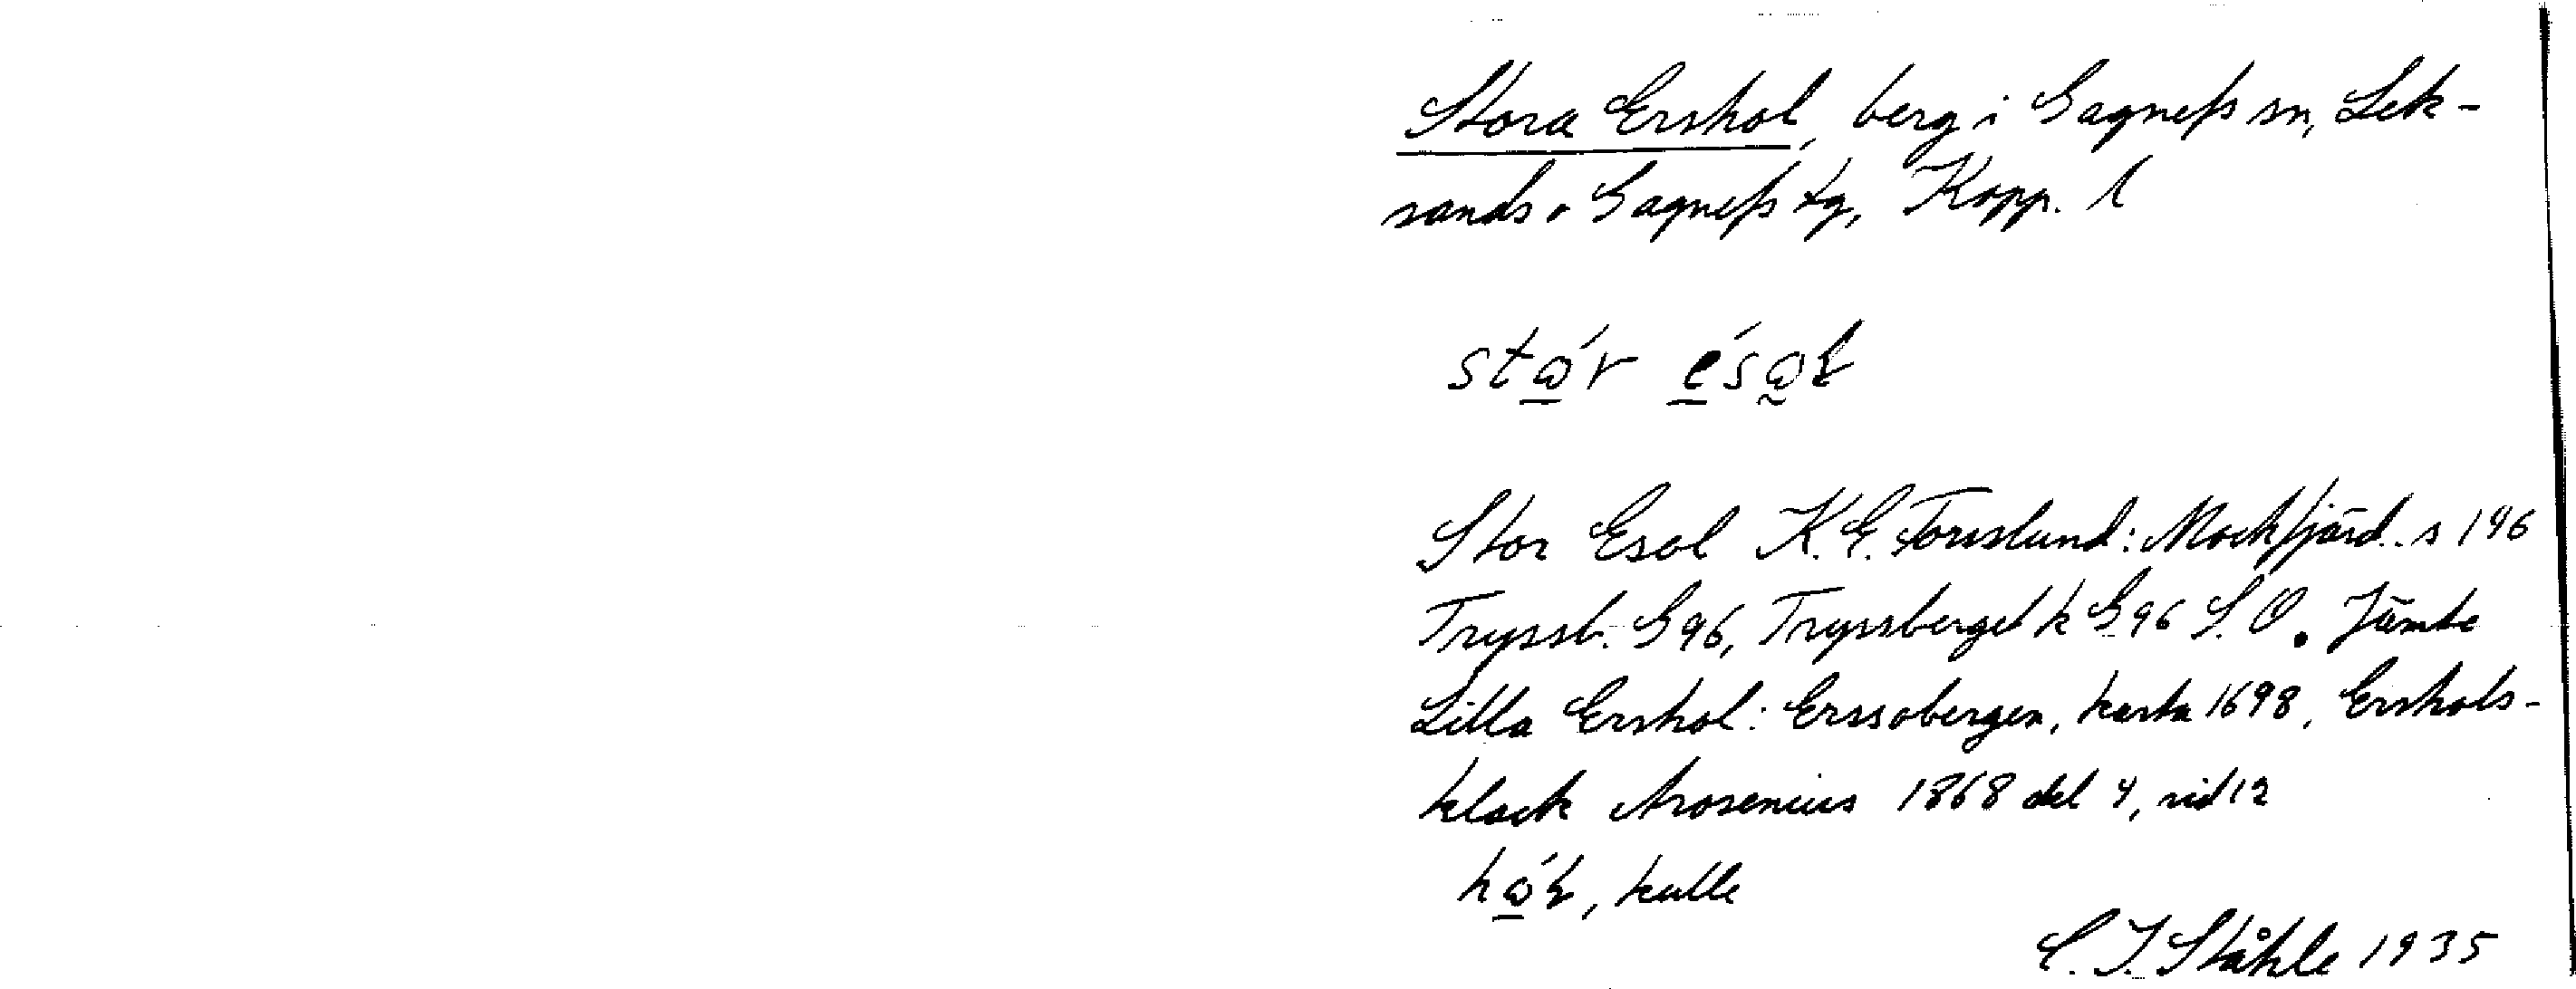 Stora Ershol, berg i Gagnefs sn, Lek-
sands o Gagnefs tg, Kopp. l
Stor Esol K. E. Forsslund: Mockfjärd.. s 196
Tryssb. G96, Tryssberget k G96 S. O. Jämte
Lilla Ershol: Erssobergen, karta 1698, Ershols-
klack Arosenius 1868 del 4, sid 12
kulle
C. I. Ståhle 1935